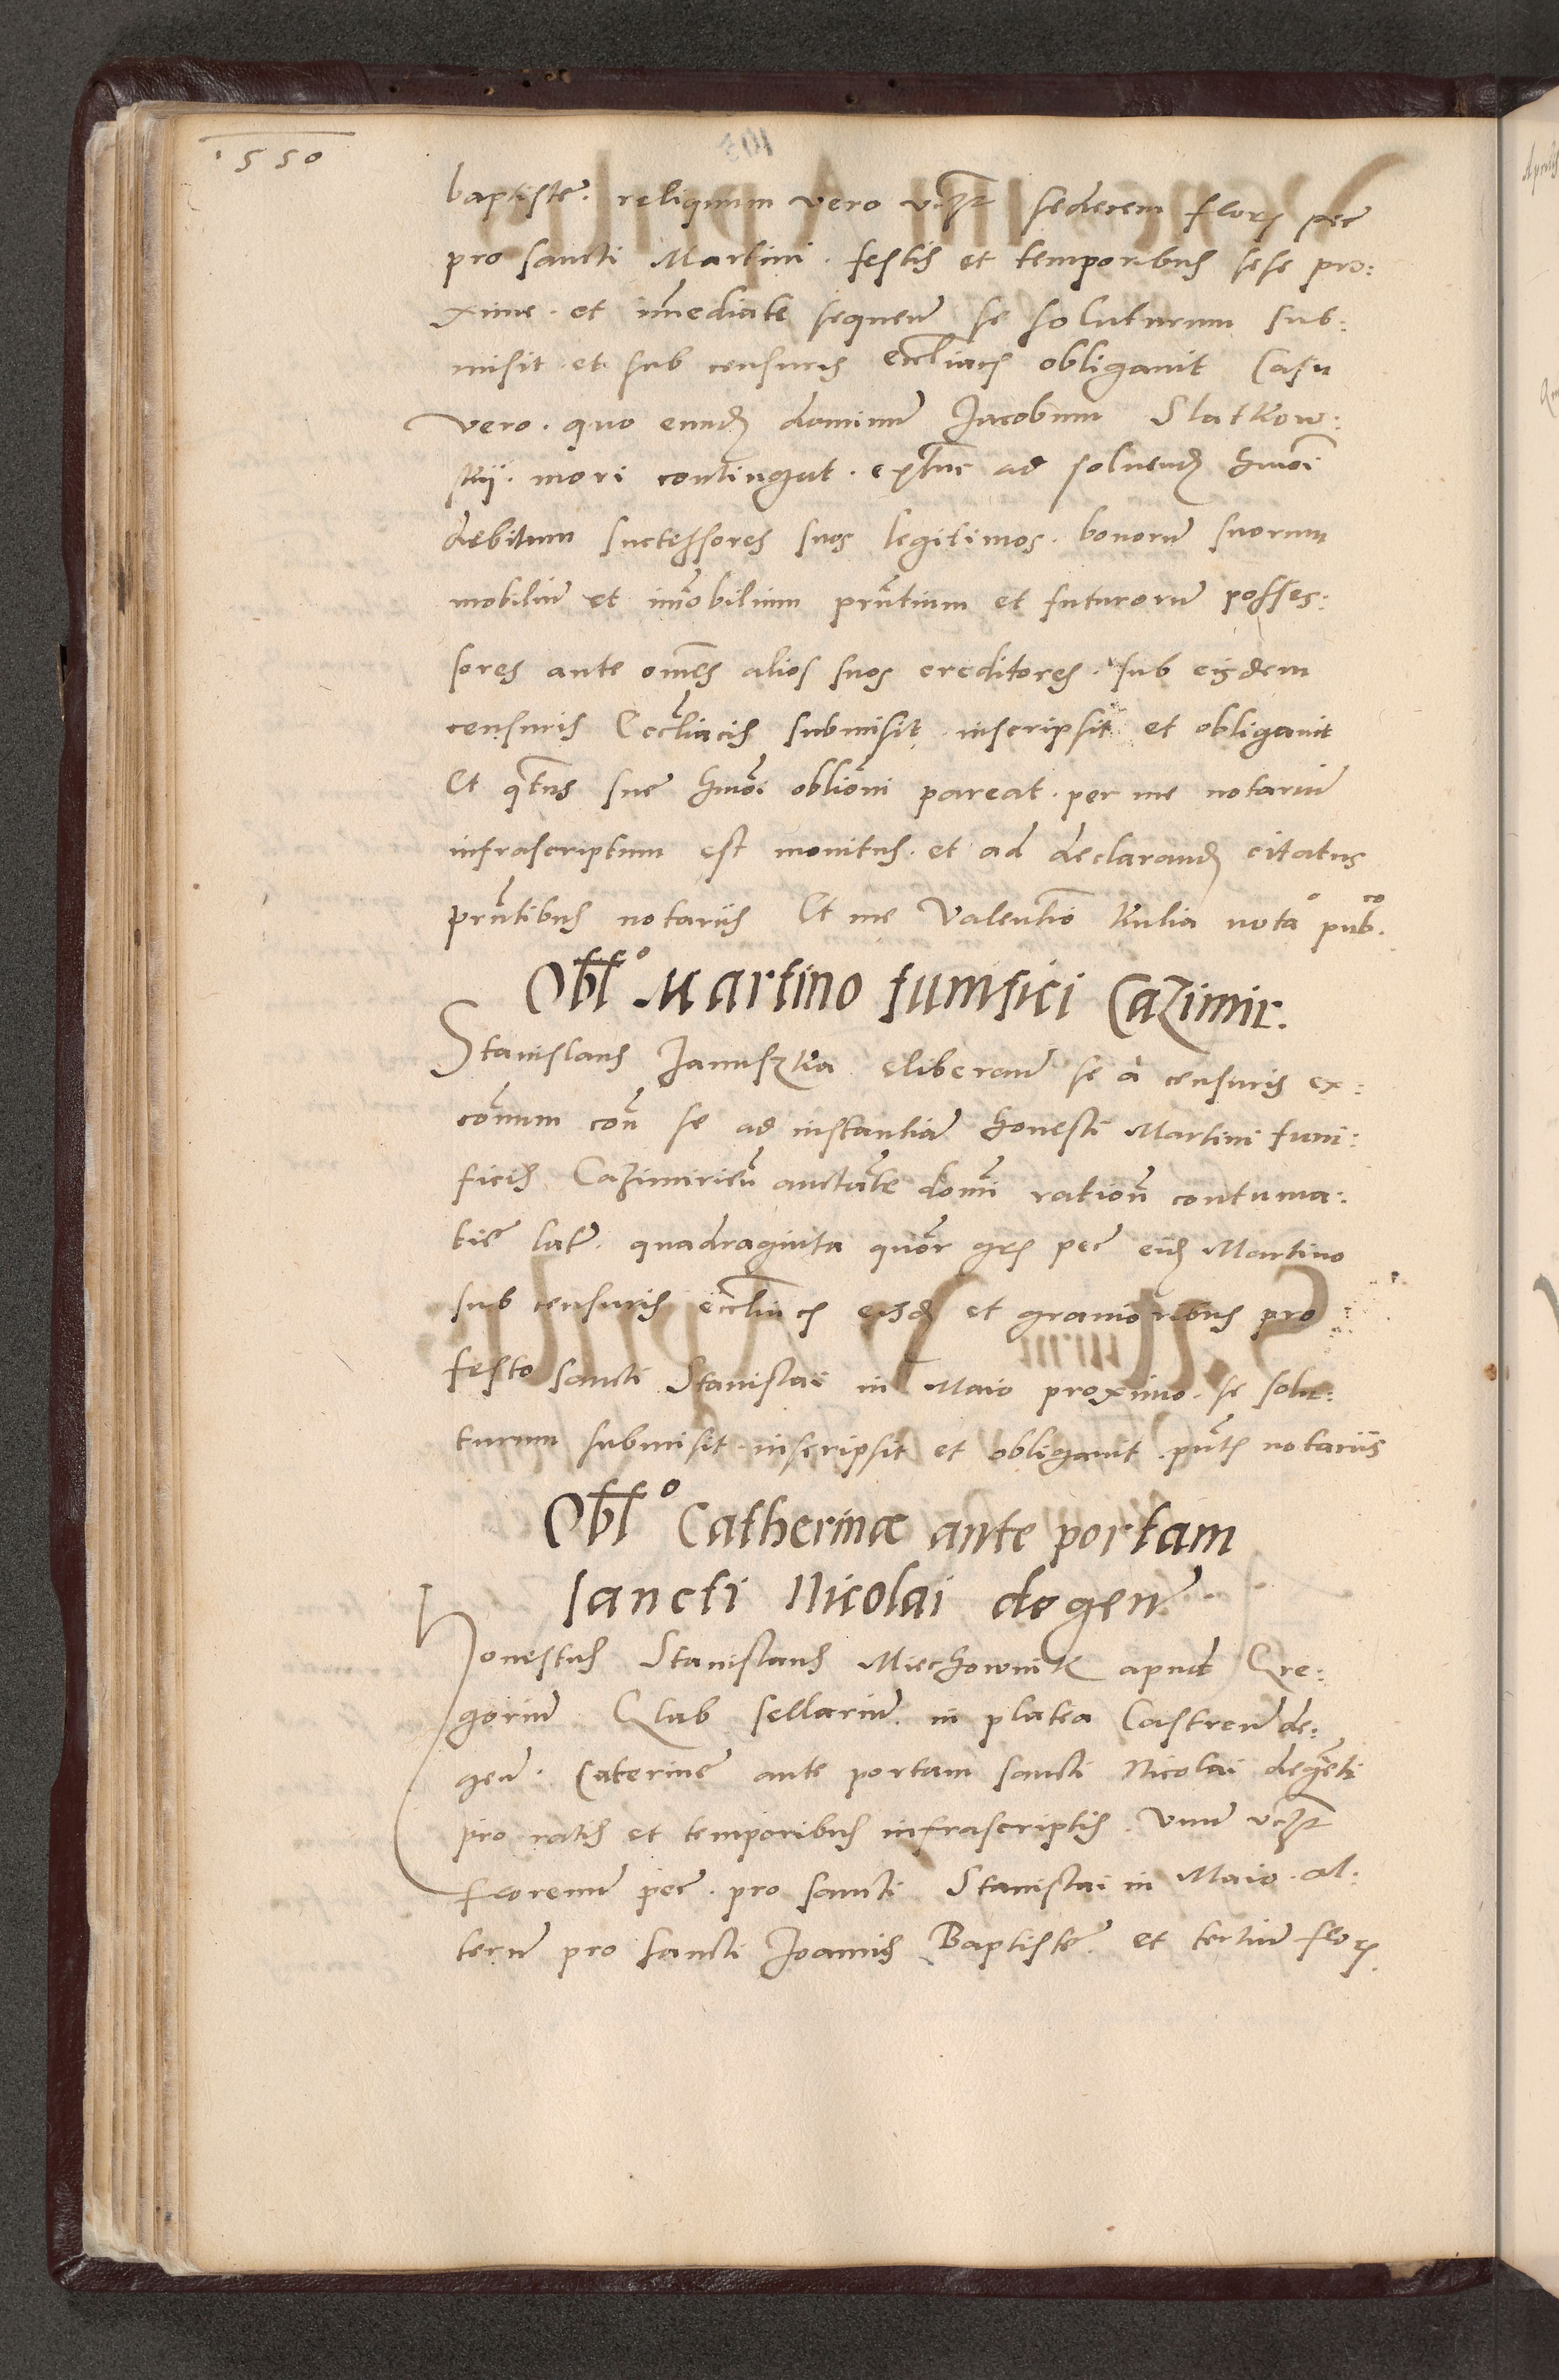 1550
baptiste. reliquum vero vczt sedecem flor pec
pro sancti Martini. festis et temporibus sese pro:
xime. et imediate sequen se soluturum sub:
misit et sub censuris eccliacis obligavit Casu
vero. quo eund dominum Jacobum Slatkow:
skij. mori contingat. extunc ad solvend hmoi
debitum successores suos legitimos. bonorum suorum
mobilium et imobilium pntium et futurorum posses:
sores ante omes alios suos creditores. sub eisdem
censuris Eccliacis submisit inscripsit et obligavit
Et qtus sue hmoi oblioni pareat. per me notarium
infrascriptum est monitus. et ad declarand citatus
pntibus notariis Et me Valentino Kulia nota° pubco.
Obl° Martino funifici Cazimir.
Stanislaus Januszka eliberavit se à censuris ex:
comun con se ad instantiam honesti Martini funi:
ficis Cazimirien auctate domi contuma:
tie lat. quadraginta quor grs pec eid Martino
sub censuris eccliacis eisd et gravioribus pro
festo sancti Stanislai in Maio proximo. se solu:
turum submisit inscripsit et obligavit. pntes notariis
Obl° Catherinæ ante portam
sancti Nicolai degen
Honestus Stanislaus Miechownik apud Gre:
gorium Glab sellarium. in platea Castren de:
gen. Caterine ante portam sancti Nicolai degenti
pro ratis et temporibus infrascriptis. Unum vczt
florenum pec. pro sancti Stanislai in Maio. al:
terum pro sancti Joannis Baptiste. et tertium flor.